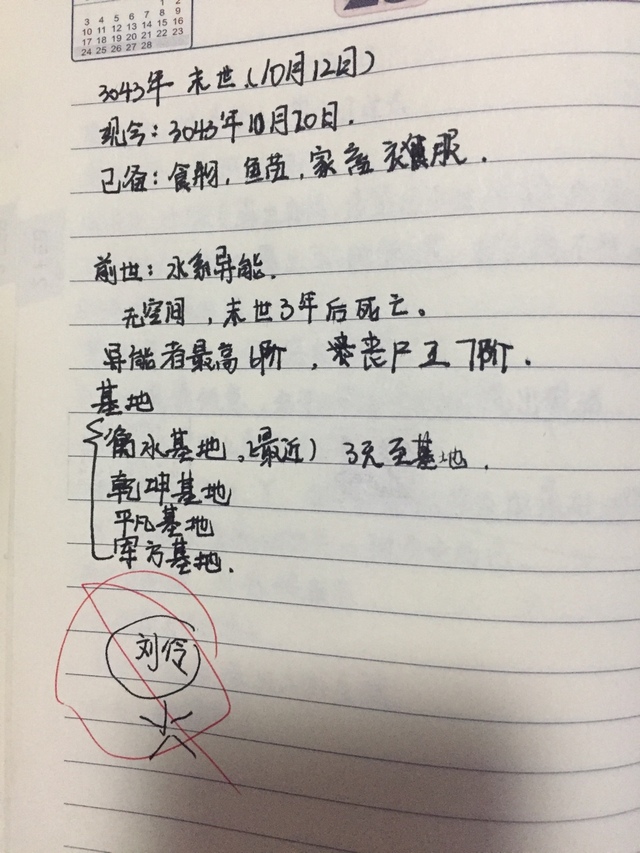 1 2
3 4 5 6 7 8 9
10 11 12 13 14 15 16
17 18 19 20 21 22 23
24 25 26 27 28
3043年 末世(10月12日)
现今:3043年10月20日.
已备:食物,鱼苗,家畜 衣服.
前世:水系异能.
无空间,末世3年后死亡。
异能者最高6阶,丧尸王7阶.
基地
衡水基地,(最近) 3天至基地.
乾坤基地
平凡基地
军方基地.
刘伶